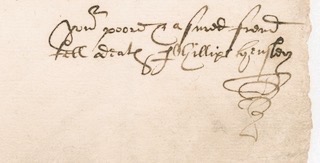 yor poore & assured frend
till death Phillipe Hensley